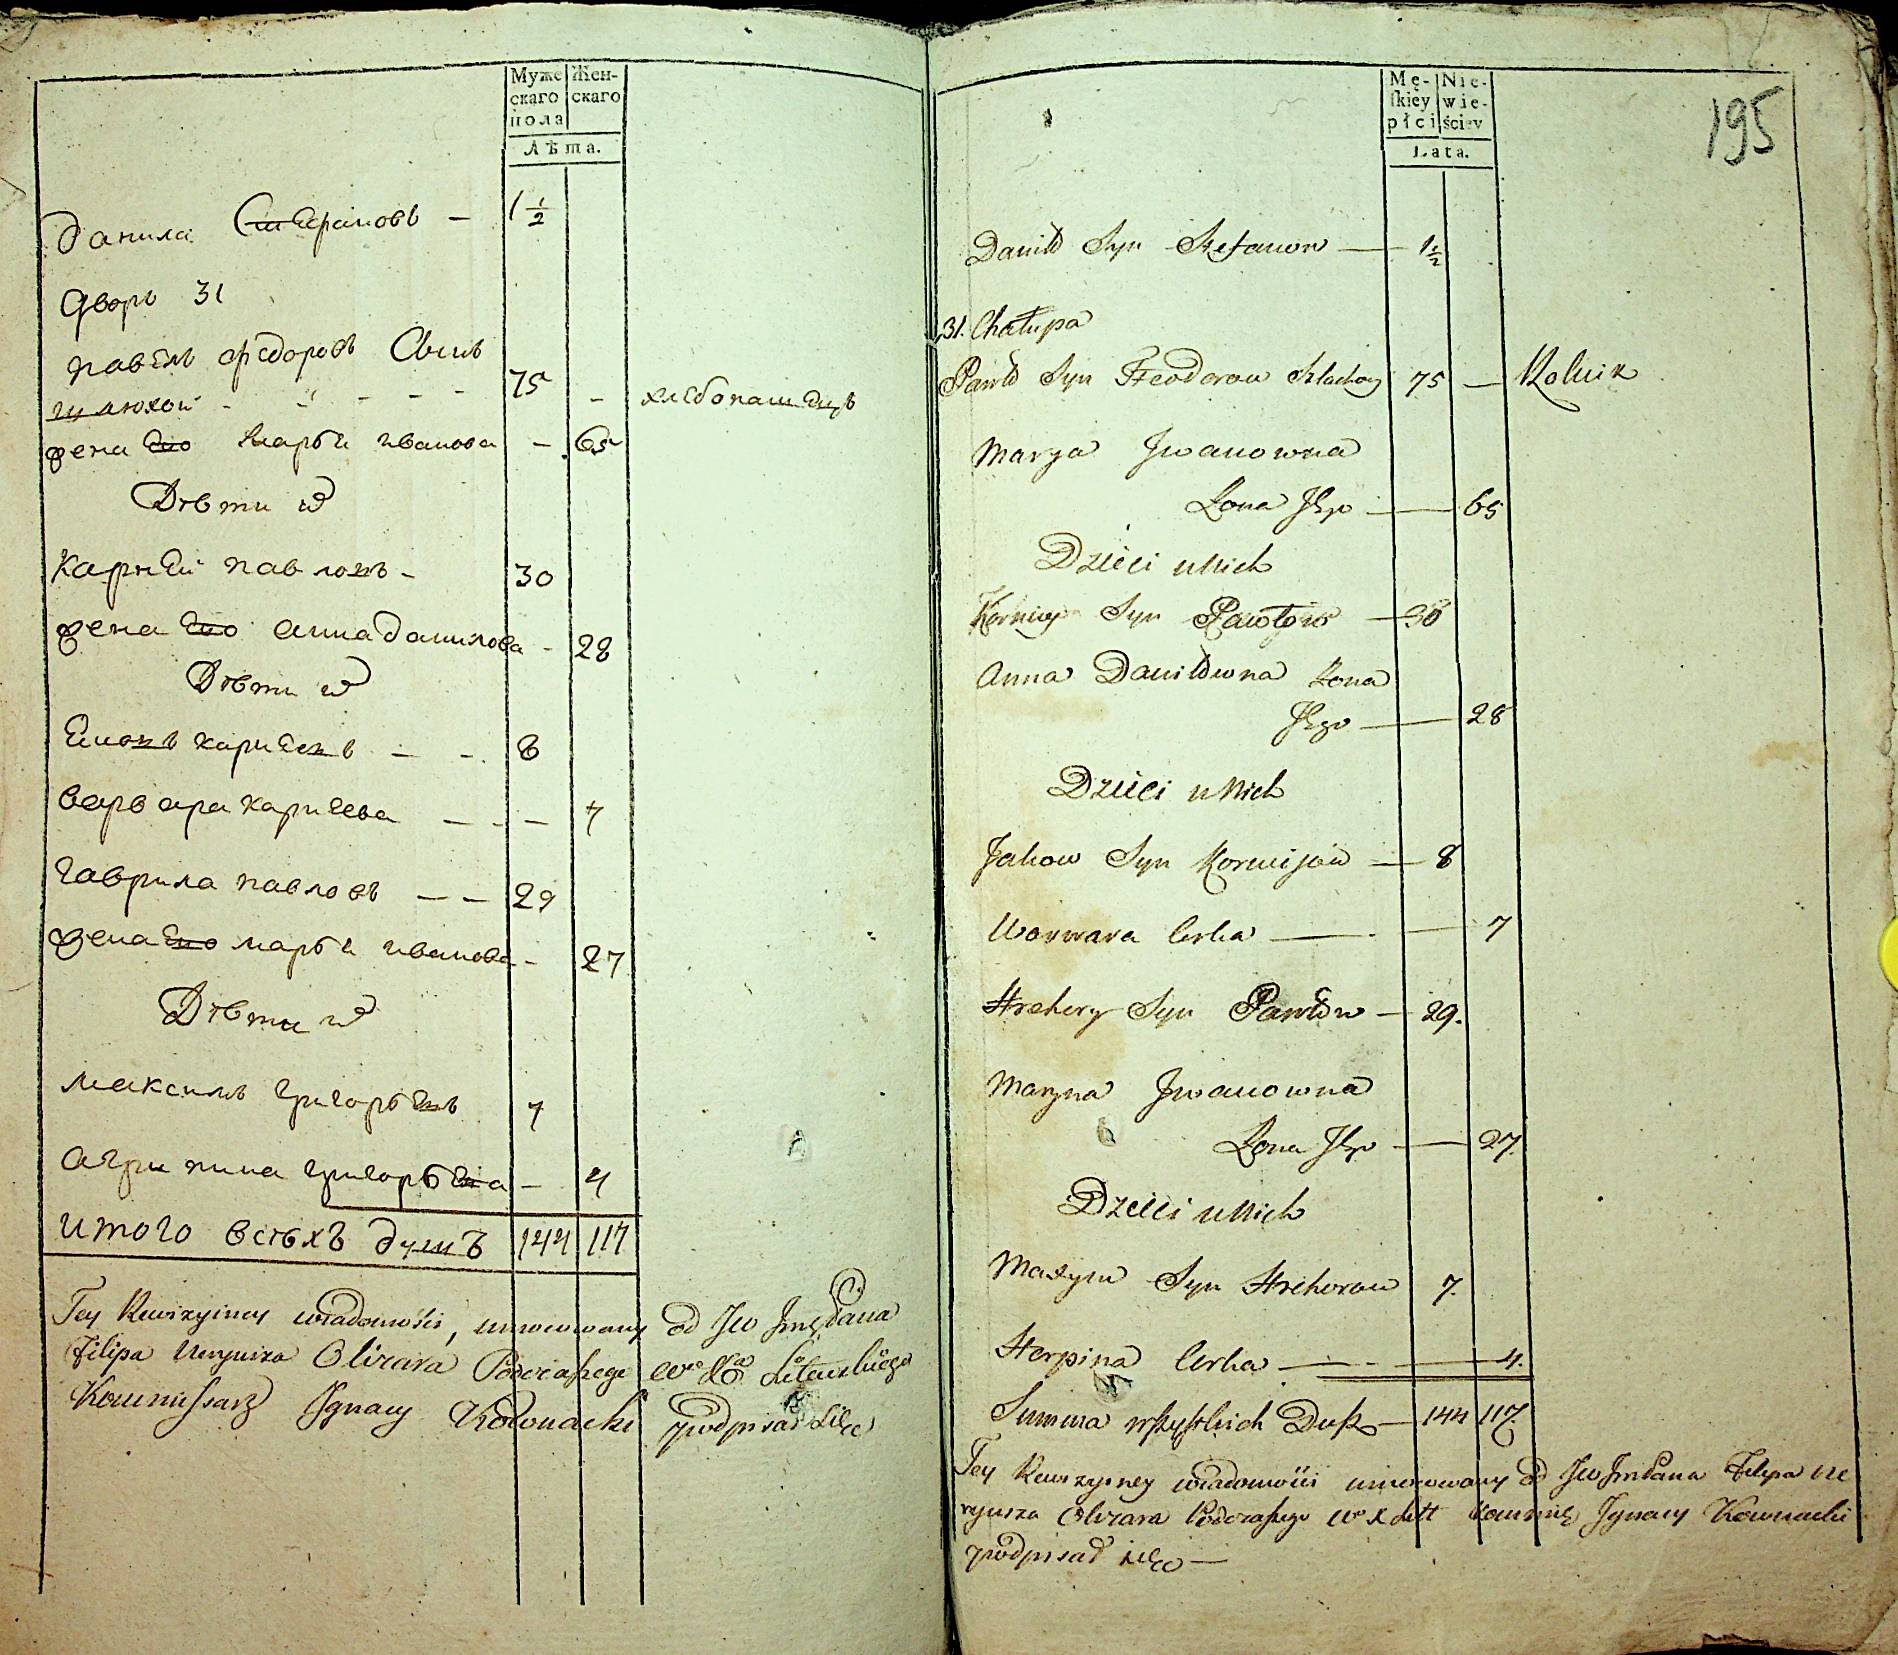 Муже
скаго
пола
Жен-
скаго
Лѣта.
Данила Стефановъ — 1 1/2
Дворъ 31
Павелъ Федоровъ Сынъ
75 - хлебопашецъ
жена Его Марья Иванова — 65
Дѣти их
Карней Павловъ - 30
жена Его Анна Данилова - 28
Дѣти их
карнеевъ — - 8
Варвара карнеева — - — 7
Гаврила Павловъ — — 29
жена Его Марья Иванова - 27
Дѣти их
Максимъ Григорьевъ 7
Агрипина Григорьева — 4
Итого всѣхъ душъ 144 117
Tey Rewizyiney wiadomości, umocowany od JW Jmć Pana
Filipa Neryusza Olizara Podczaszego Wo Xa Litewskiego
Kommissarz Ignacy Kownacki podpisał się
Mę-
skiey
płci
Nie-
wie-
ściey
Lata.
195
Daniło Syn Stefanow — 1 1/2
31. Chałupa
Pawło Syn Feodorow 75 — Rolnik
Marya Jwanowna
Żona Jego — 65
Dzieci u Nich
Korniey Syn Pawłow — 30
Anna Daniłowna Żona
Jego — 28
Dzieci u Nich
Jakow Syn Kornijow — 8
Warwara Corka — 7
Hrehory Syn Pawłow — 29.
Maryna Jwanowna
Żona Jego — 27.
Dzieci u Nich
Maxym Syn Hrehorow 7.
Horpina Corka — 4.
Summa wszystkich Dusz — 144 117.
Tey Rewizyiney wiadomości umocowany od JW Jm Pana Filipa Ne
ryusza Olizara Podczaszego Wo X Litt Kommis Ignacy Kownacki
podpisał się —